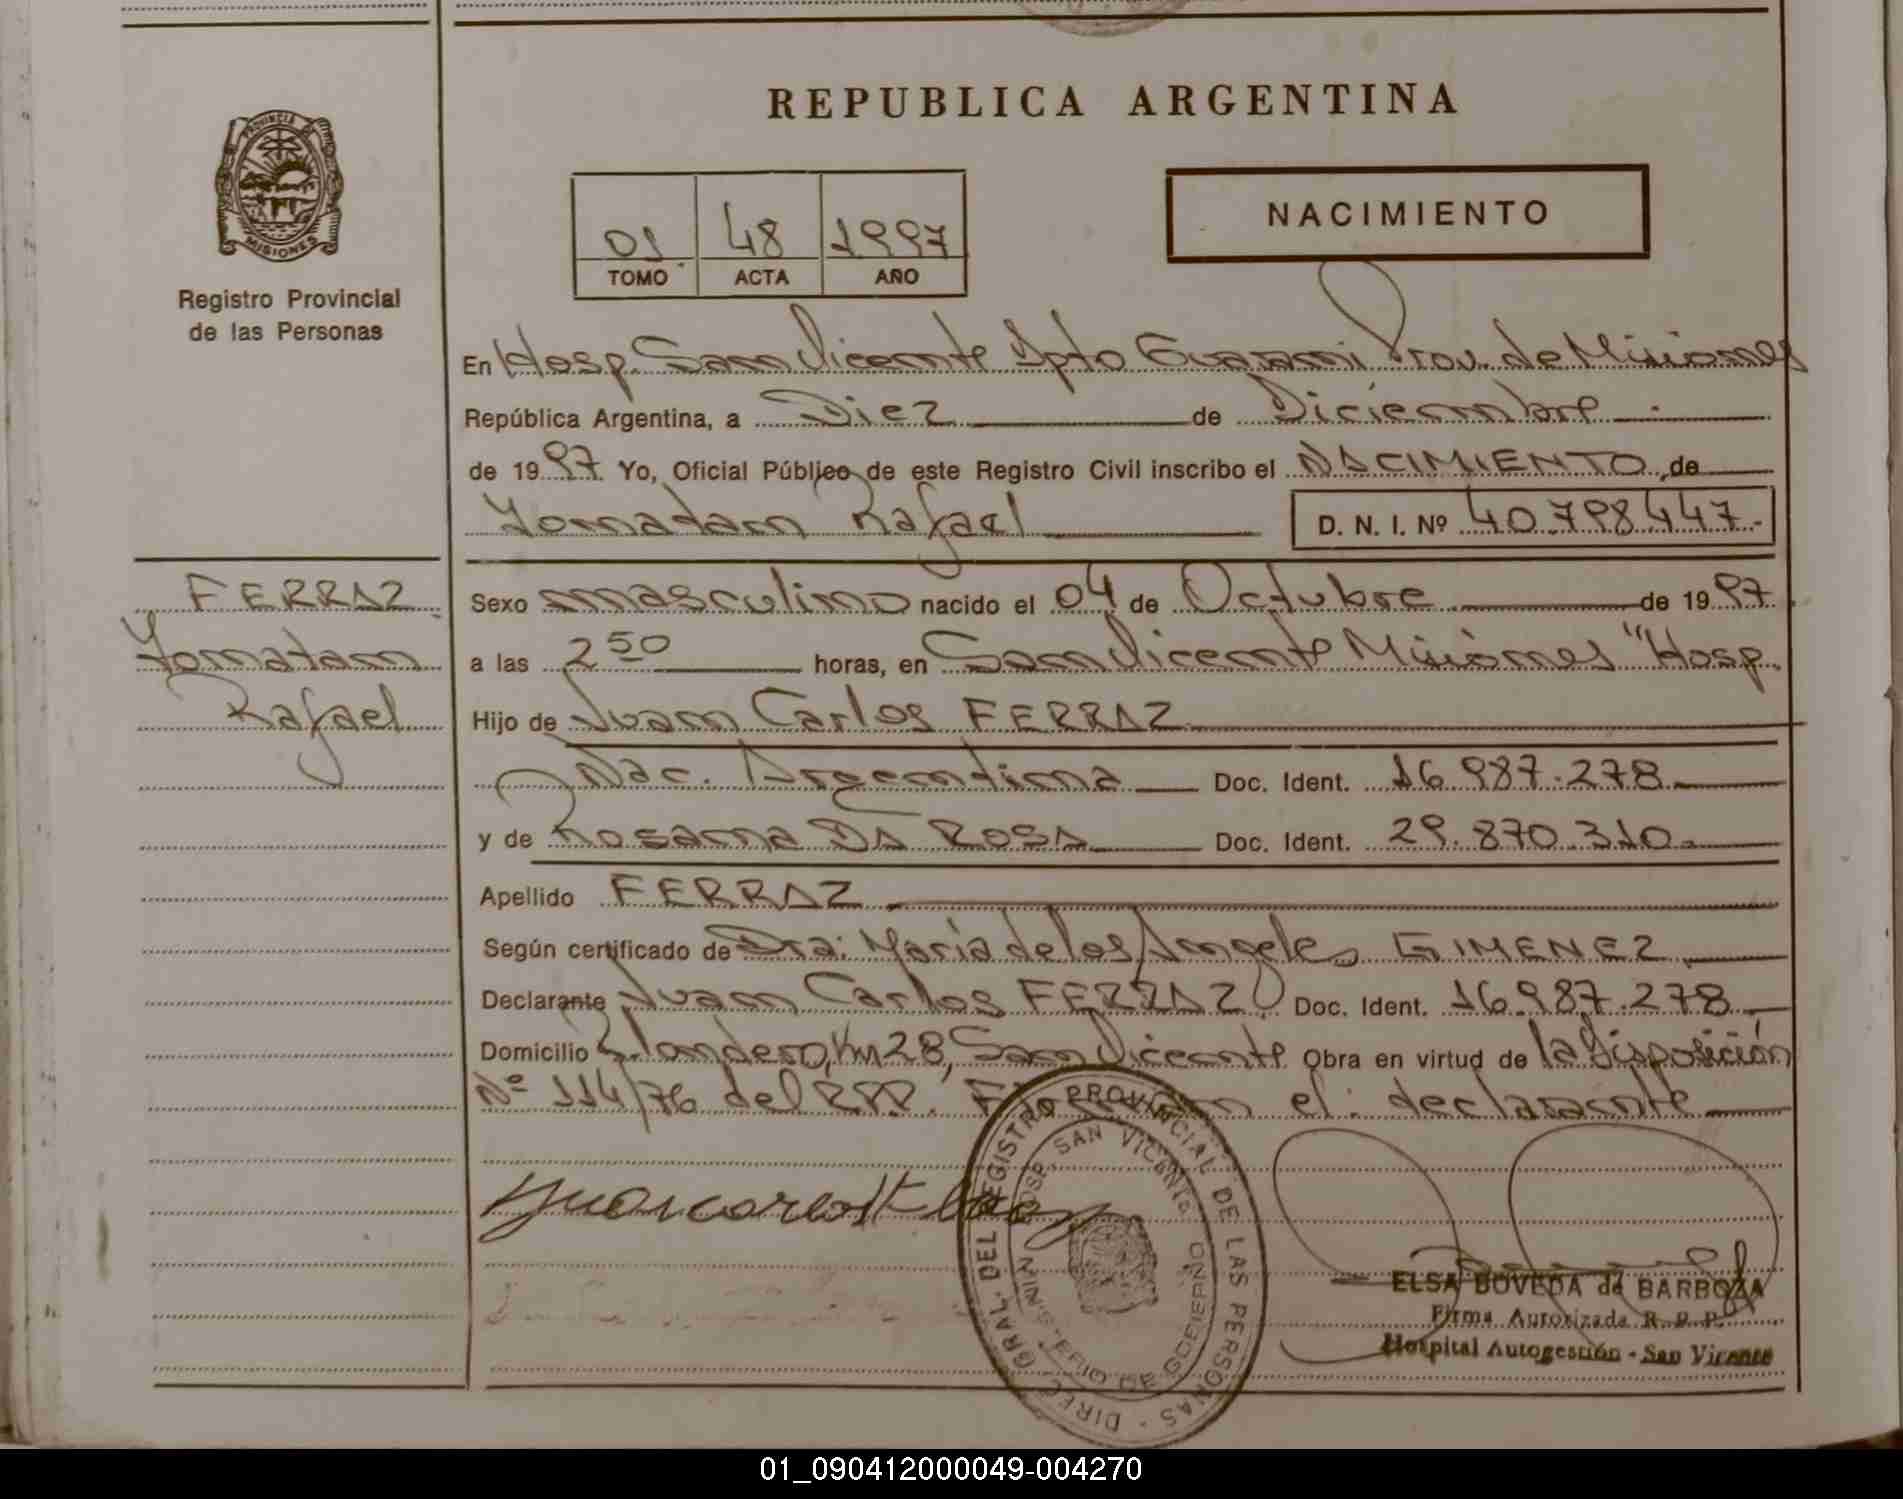 REPUBLICA ARGENTINA
PROVINCIA DE
MISIONES
Registro Provincial
de las Personas
01 48 1997
TOMO ACTA AÑO
NACIMIENTO
En Hosp. San Vicente Dpto Guarani Prov. de Misiones
República Argentina, a Diez de Diciembre
de 1997 Yo, Oficial Público de este Registro Civil inscribo el NACIMIENTO de
Yonadan Rafael D. N. I. Nº 40.798447.
FERRAZ
Yonatan
Rafael
Sexo masculino nacido el 04 de Octubre de 1997
a las 2 50 horas, en San Vicente Misiones "Hosp.
Hijo de Juan Carlos FERRAZ
Nac. Argentina Doc. Ident. 16.987.278
y de Rosana DA ROSA Doc. Ident. 29.870.310.
Apellido FERRAZ
Según certificado de Dra: Maria de los Angeles GIMENEZ
Declarante Juan Carlos FERRAZ Doc. Ident. 16.987.278
Domicilio Km 28, San Vicente Obra en virtud de la Disposición
Nº 114/76 del R.P.P. el declarante
DIREC. GRAL. DEL REGISTRO PROVINCIAL DE LAS PERSONAS
HOSP. SAN VICENTE
MINISTERIO DE GOBIERNO
ELSA BOVEDA de BARBOZA
Firma Autorizada R. P. P.
Hospital Autogestión - San Vicente
01_090412000049-004270